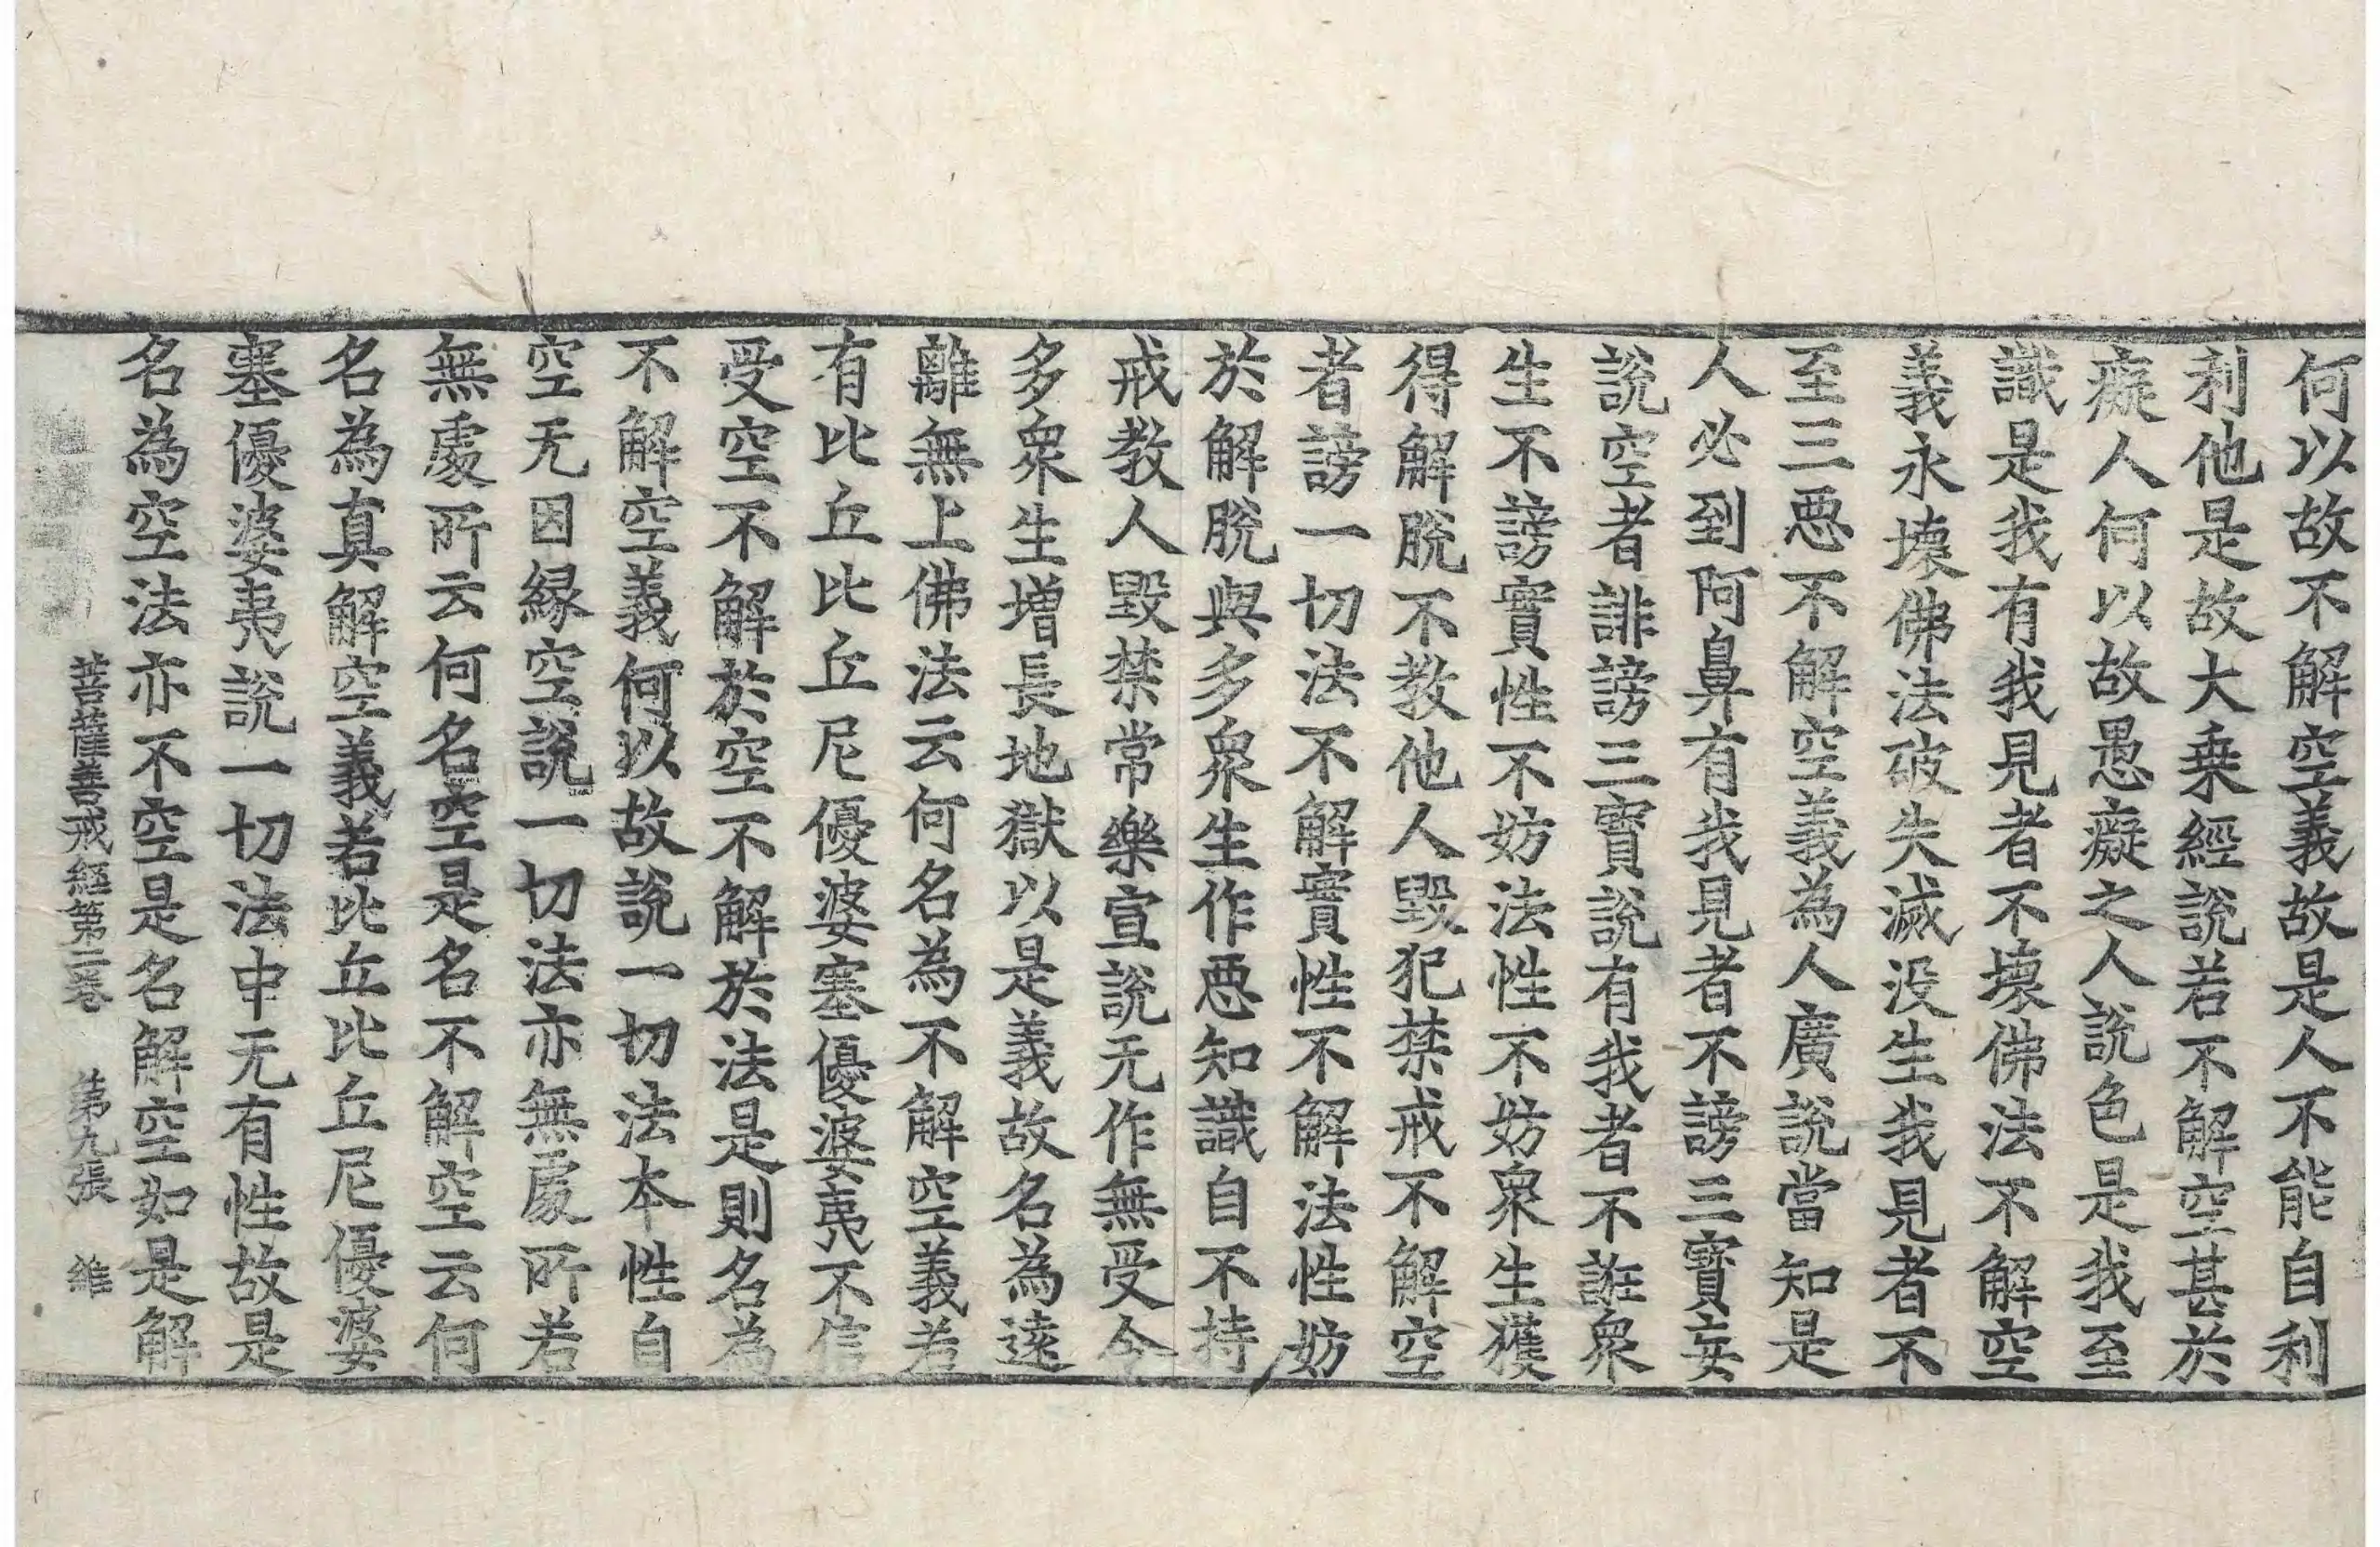 何以故不解空義故是人不能自利
利他是故大乗經說若不解空甚於
癡人何以故愚癡之人說色是我至
識是我有我見者不壞佛法不解空
義永壞佛法破失滅没生我見者不
至三惡不解空義為人廣說當知是
人必到阿鼻有我見者不謗三寳妄
說空者誹謗三寳說有我者不誑衆
生不謗實性不妨法性不妨衆生獲
得解脫不教他人毀犯禁戒不解空
者謗一切法不解實性不解法性妨
於解脫與多衆生作惡知識自不持
戒教人毀禁常樂宣說无作無受令
多衆生增長地獄以是義故名為遠
離無上佛法云何名為不解空義若
有比丘比丘尼優婆塞優婆夷不信
受空不解於空不解於法是則名為
不解空義何以故說一切法本性自
空无因緣空說一切法亦無處所若
無處所云何名空是名不解空云何
名為真解空義若比丘比丘尼優婆
塞優婆夷說一切法中无有性故是
名為空法亦不空是名解空如是解
菩薩善戒經第二卷 第九張 維